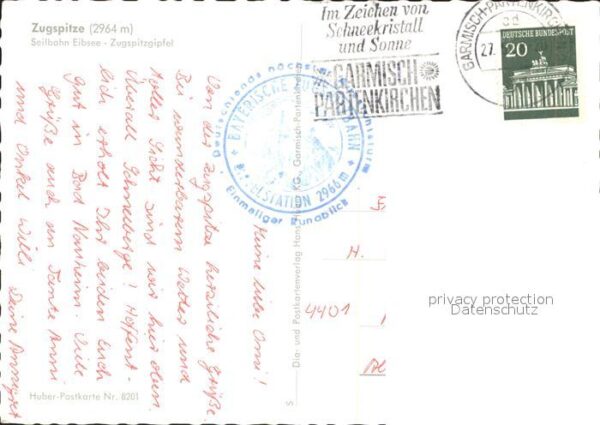 Zugspitze (2964 m)
Seilbahn Eibsee - Zugspitzgipfel
Meine liebe Omi!
Von der Zugspitze herzliche Grüße.
Bei wunderbarem Wetter und
toller Sicht sind wir hier oben.
Überall Schneeberge! Hoffent-
lich erholt Ihr beiden Euch
gut in Bad Nauheim. Viele
Grüße auch an Tante Anni
und Onkel Willi Deine Annegret
Huber-Postkarte Nr. 8201
Im Zeichen von
Schneekristall
und Sonne
GARMISCH
PARTENKIRCHEN
GARMISCH-PARTENKIRCHEN
27.
DEUTSCHE BUNDESPOST
20
Deutschlands höchster
BAYERISCHE
BAHN
STATION 2960 m
Einmaliger Rundblick
Dia- und Postkartenverlag Hans
KG., Garmisch-Partenkirchen
S
H.
4401
privacy protection
Datenschutz